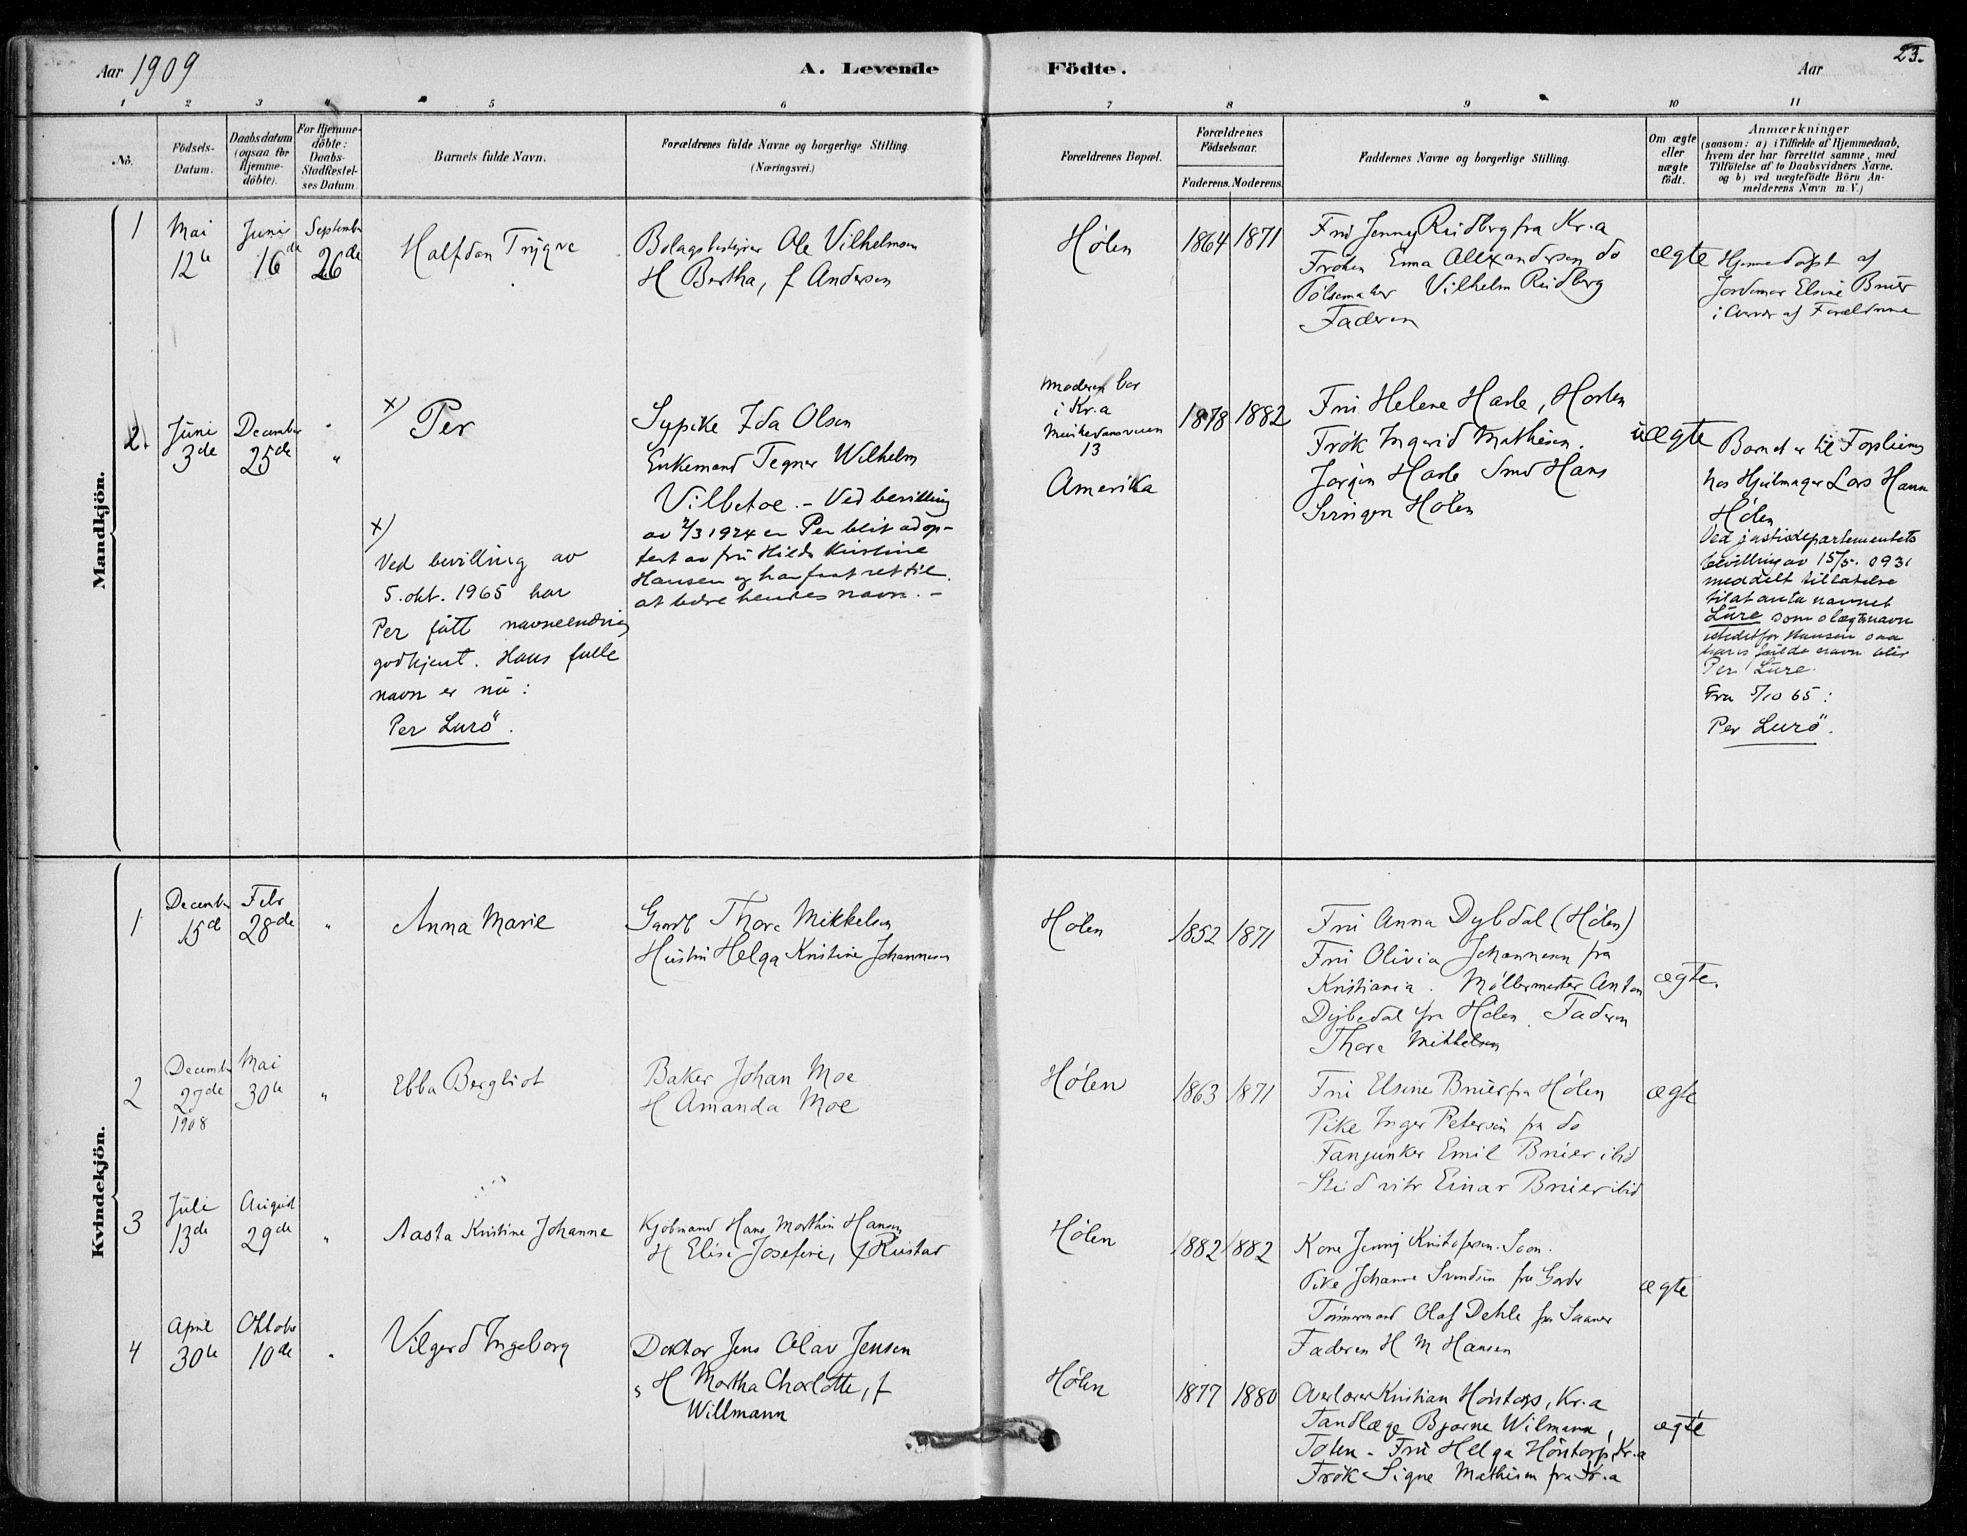 Aar 1909
A. Levende Födte.
Aar
23.
1 2 3 4 5 6 7 8 9 10 11
No.
Födsels-
Datum.
Daabsdatum
(ogsaa for
Hjemme-
döbte).
For Hjemme-
döbte:
Daabs-
Stadfæstel-
ses Datum.
Barnets fulde Navn.
Forældrenes fulde Navne og borgerlige Stilling
(Næringsvei.)
Forældrenes Bopæl.
Forældrenes
Födselsaar.
Faderens. Moderens.
Faddernes Navne og borgerlige Stilling.
Om ægte
eller
uægte
födt.
Anmærkninger
(saasom: a) i Tilfælde af Hjemmedaab,
hvem der har forrettet samme, med
Tilföielse af to Daabsvidners Navne.
og b) ved uægtefödte Börn An-
melderens Navn m. V.)
Mandkjön.
1
Mai
12te
Juni
16de
September
26de
Halfdan Trygve
Bolagsbestyrer Ole Vilhelmsen
H Bertha, f Andersen
Hølen
1864 1871
Frú Jenny Rúdberg fra Kr.a
Frøken Emma Allexandersen do
Pølsemaker Vilhelm Rúdberg
Faderen
ægte
Hjemmedøbt af
Jordemor Elsine Brúer
i Nærvær af Forældrene
2.
Júni
3de
December
25de
"
"
x)
Per
Sypike Ida Olsen
Enkemand Tegner Wilhelm
Vilbetoe. - Ved bevilling
av 2/3 1924 er Per blit adop-
tert av frú Hilda Kristine
Hansen og har faat ret til
at bære hendes navn. -
x)
Ved bevilling av
5. okt. 1965 har
Per fått navneendring
godkjent. Hans fulle
navn er nå:
Per Lurö.
Moderen bor
i Kr.a
13
Amerika
1878 1882
Frú Helene Hasle, Horten
Frøk Ingerid Mathisen.
Jørgen Hasle Smed Hans
Hølen
úægte
Barnet er til Forpleining
hos Hjúlmager Lars Hann
Hølen
Ved justisdepartementets
bevilling av 15/5. 1931
meddelt tillatelse
til at anta navnet
Lúre som slægtsnavn
istedetfor Hansen saa
hans fulde navn blir
Per Lúre.
Fra 5/10 65:
Per Lurö.
Kvindekjön.
1
December
15de
Febr
28de
"
Anna Marie
Gaardb Thore Mikkelsen
Hústrú Helga Kristine Johannesen
Hølen
1852 1871
Frú Anna Dybdal (Hølen)
Frú Olivia Johannesen fra
Kristiania. Møllermester Anton
Dybedal fra Hølen. Faderen
Thore Mikkelsen
ægte.
2
December
27de
1908
Mai
30te
"
Ebba Bergliot
Baker Johan Moe
H Amanda Moe
Hølen
1863 1871
Frú Elsine Brúer fra Hølen
Pike Inger Petersen fra do
Fanejúnker Emil Brúer ibid
Einar Brúer ibid
ægte
3
Júli
13de
Aúgúst
29de
"
Aasta Kristine Johanne
Kjøbmand Hans Marthin Hansen
H Elise Josefine, f Rústad
Hølen
1882 1882
Kone Jenny Kristofersen. Soon.
Pike Johanne Svendsen fra Garder
Tømmermand Olaf Dehle fra Saaner
Faderen H M Hansen
ægte
4
April
30te
Oktober
10de
"
Vilgerd Ingeborg
Doktor Jens Olav Jensen
H Martha Charlotte, f
Willmann
Hølen
1877 1880
Overlærer Kristian Høstorp, Kr.a
Tandlæge Bjarne Wilmann,
Toten - Frú Helga Høstorp, Kr.a
Frøk Signe Mathisen fra Kr.a
ægte